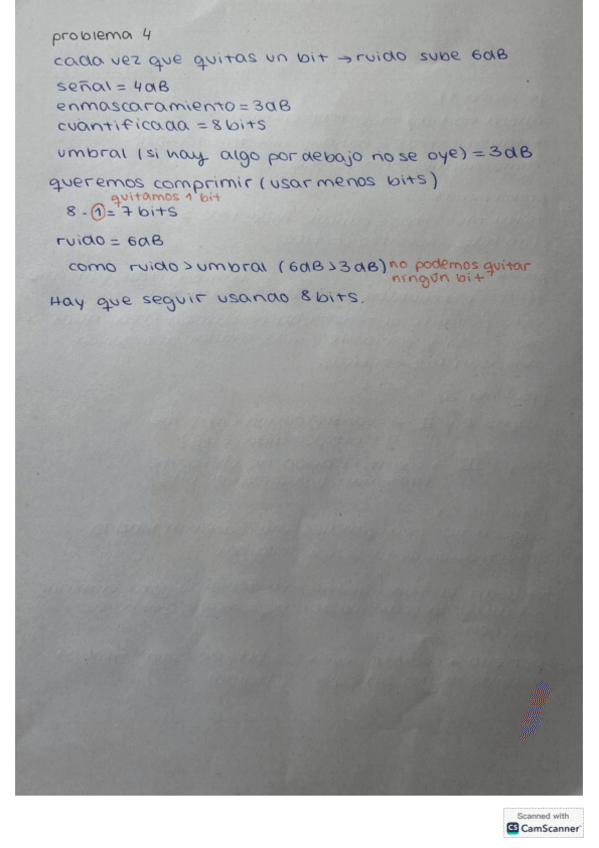 problema 4
cada vez que quitas un bit → ruido sube 6dB
señal = 4dB
enmascaramiento = 3dB
cuantificada = 8 bits
umbral (si hay algo por debajo no se oye) = 3dB
queremos comprimir (usar menos bits)
quitamos 1 bit
8 - 1 = 7 bits
ruido = 6dB
como ruido > umbral (6dB > 3dB) no podemos quitar
ningún bit
Hay que seguir usando 8 bits.
Scanned with
CS CamScanner